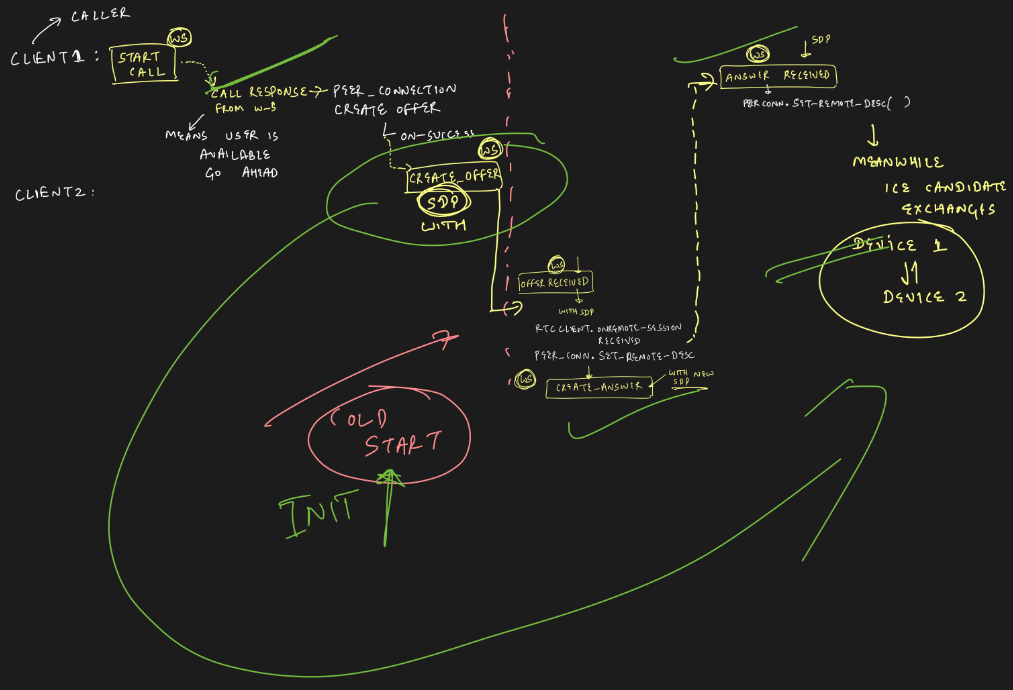 CALLER
CLIENT1 :
WS
START
CALL
CALL RESPONSE → PEER_CONNECTION
FROM W-S
CREATE OFFER
MEANS USER IS
AVAILABLE
GO AHEAD
ON-SUCCESS
WS
CREATE_OFFER
SDP
WITH
CLIENT2 :
WS
OFFER RECEIVED
WITH SDP
RTC CLIENT. ONREMOTE-SESSION
RECEIVED
PEER_CONN. SET_REMOTE-DESC
WS
CREATE_ANSWER
WITH NEW
SDP
WS
SDP
ANSWER RECEIVED
PEERCONN. SET-REMOTE-DESC( )
MEANWHILE
ICE CANDIDATE
EXCHANGES
DEVICE 1
DEVICE 2
COLD
START
INIT